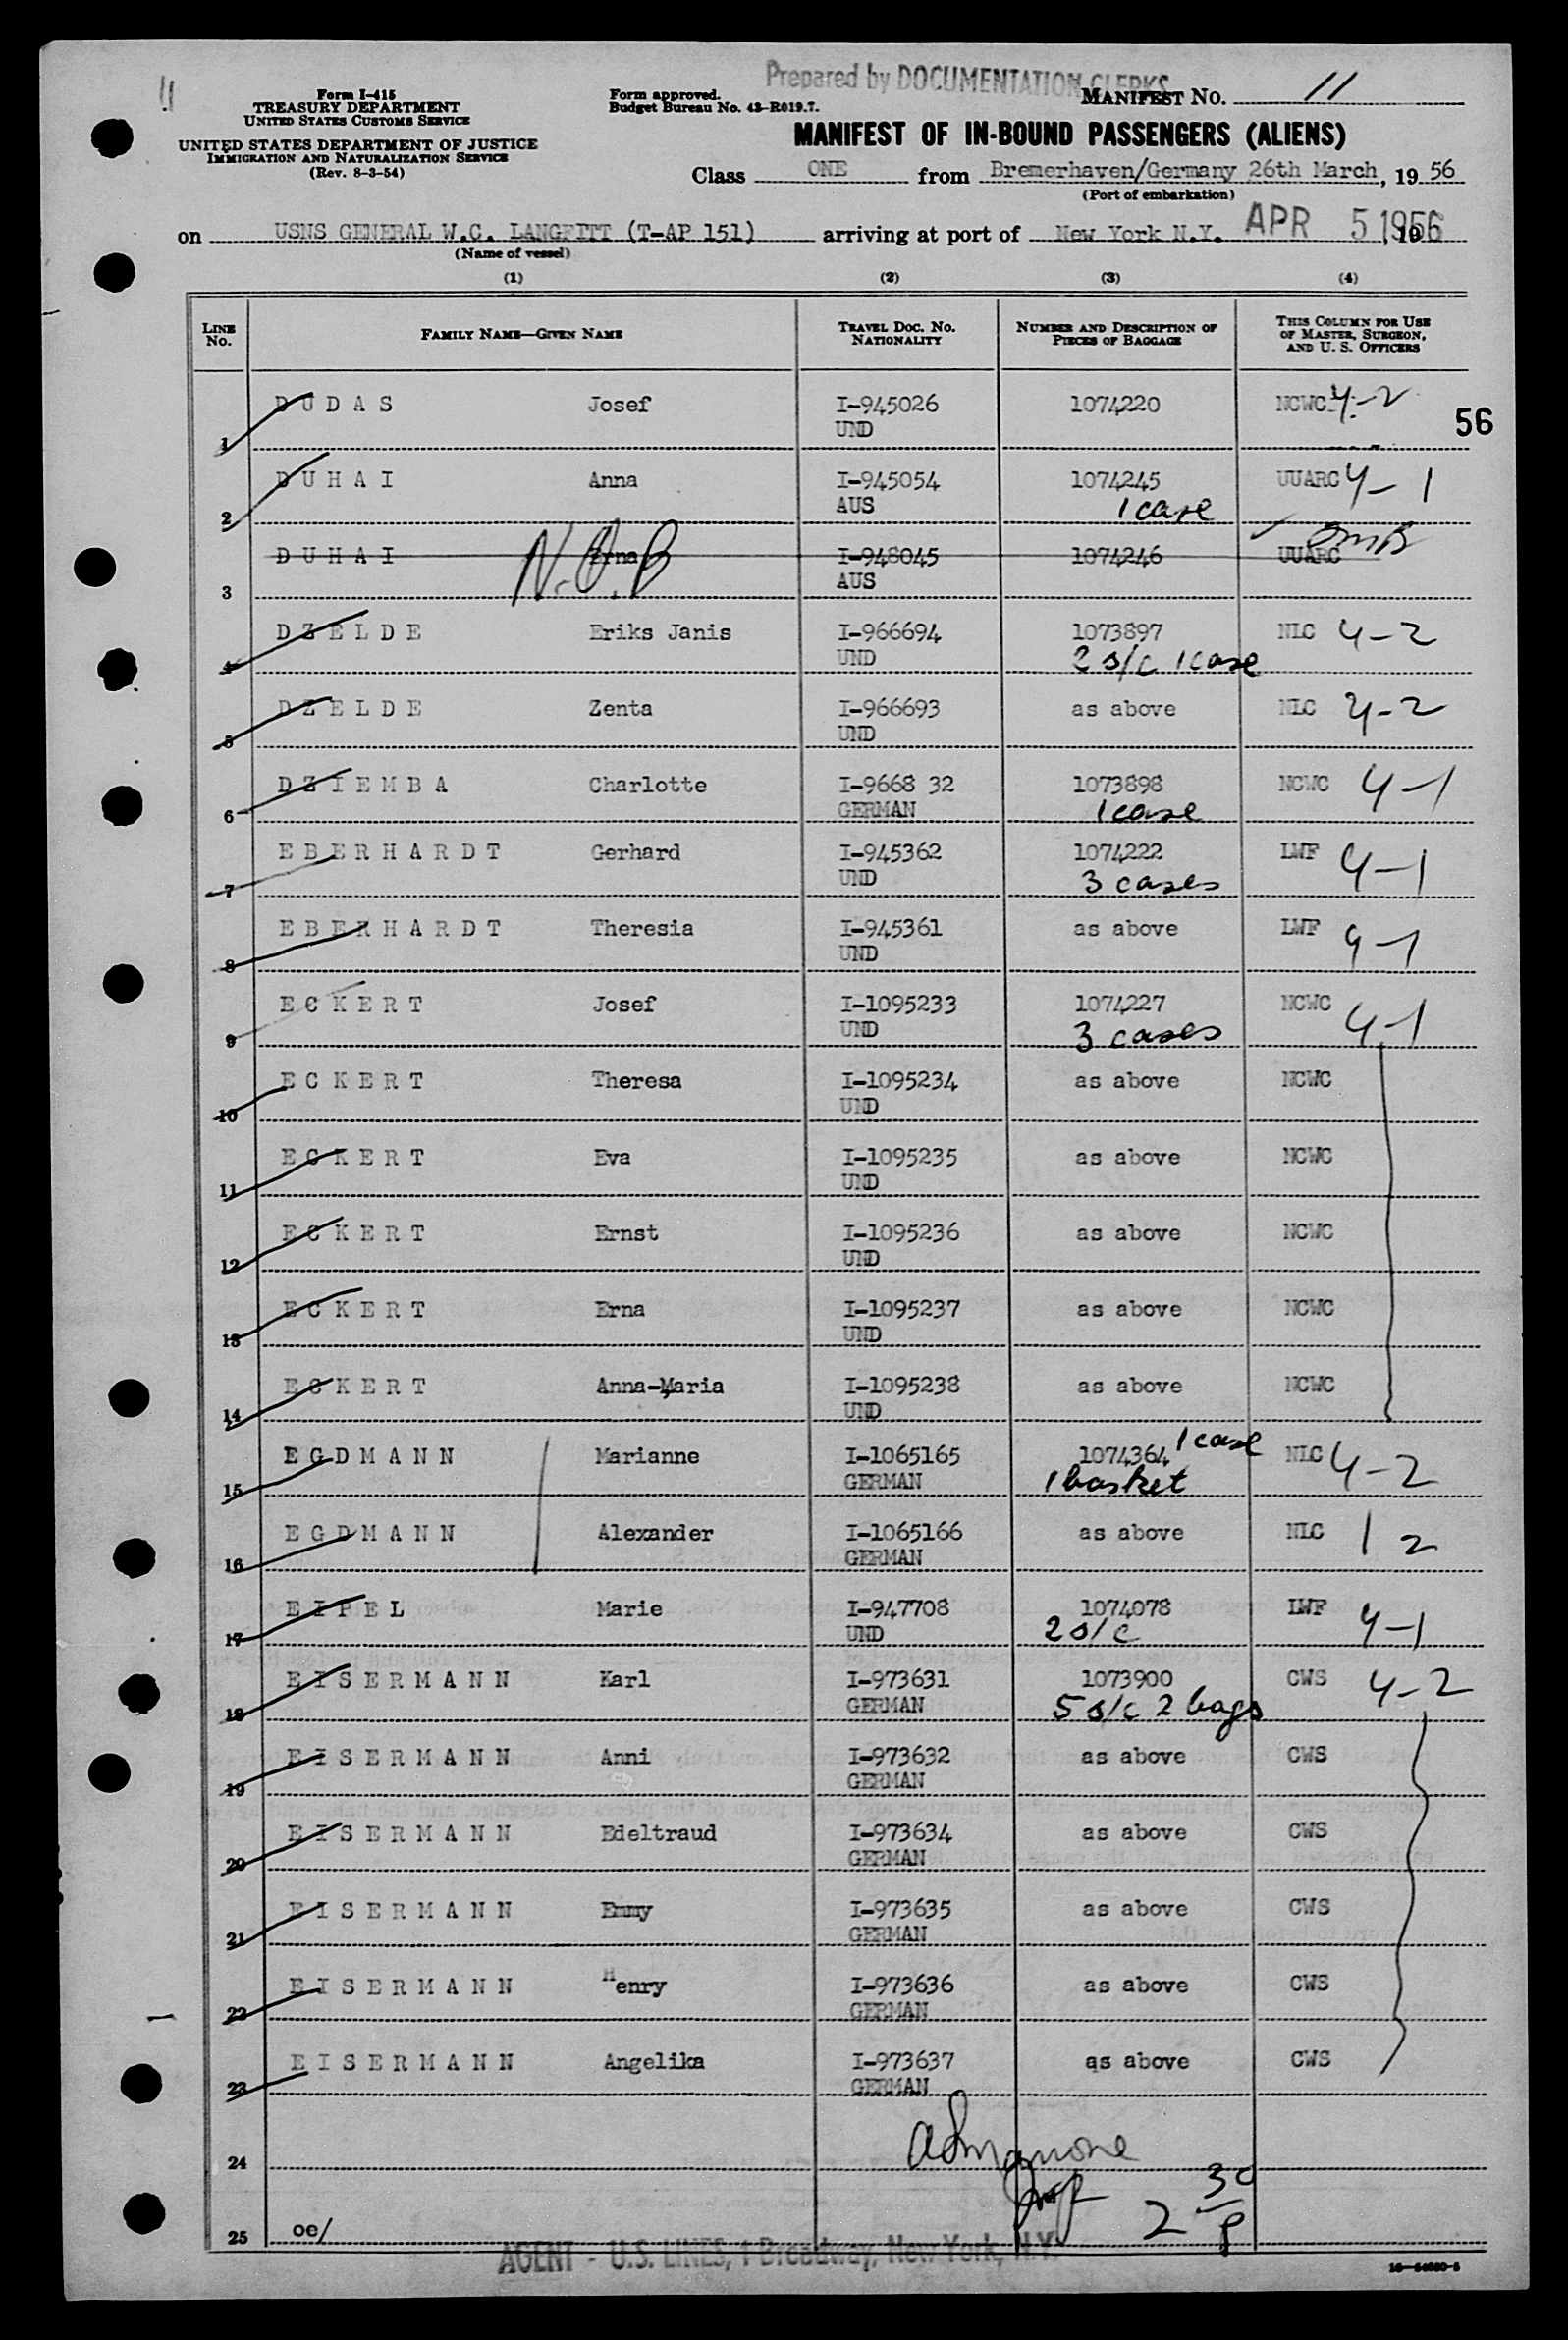 11
Prepared by DOCUMENTATION CLERKS
Form I-415
TREASURY DEPARTMENT
UNITED STATES CUSTOMS SERVICE
UNITED STATES DEPARTMENT OF JUSTICE
IMMIGRATION AND NATURALIZATION SERVICE
(Rev. 8-3-54)
Form approved.
Budget Bureau No. 43-R019.7.
MANIFEST NO. 11
MANIFEST OF IN-BOUND PASSENGERS (ALIENS)
Class ONE from Bremerhaven/Germany 26th March, 19 56
(Port of embarkation)
on USNS GENERAL W.C. LANGFITT (T-AP 151) arriving at port of New York N.Y. APR 5 1956, 19
(Name of vessel)
(1) (2) (3) (4)
LINE NO. FAMILY NAME—GIVEN NAME TRAVEL DOC. NO. NATIONALITY NUMBER AND DESCRIPTION OF PIECES OF BAGGAGE THIS COLUMN FOR USE OF MASTER, SURGEON, AND U. S. OFFICERS
56
1 DUDAS Josef I-945026 1074220 NCWC 4-2
UND
2 DUHAI Anna I-945054 1074245 UUARC 4-1
AUS 1 case
3 DUHAI Erna N.O.B I-948045 1074246 UUARC
AUS
4 DZELDE Eriks Janis I-966694 1073897 NLC 4-2
UND 2 s/c 1 case
5 DZELDE Zenta I-966693 as above NLC 4-2
UND
6 DZIEMBA Charlotte I-9668 32 1073898 NCWC 4-1
GERMAN 1 case
7 EBERHARDT Gerhard I-945362 1074222 LWF 4-1
UND 3 cases
8 EBERHARDT Theresia I-945361 as above LWF 4-1
UND
9 ECKERT Josef I-1095233 1074227 NCWC 4-1
UND 3 cases
10 ECKERT Theresa I-1095234 as above NCWC
UND
11 ECKERT Eva I-1095235 as above NCWC
UND
12 ECKERT Ernst I-1095236 as above NCWC
UND
13 ECKERT Erna I-1095237 as above NCWC
UND
14 ECKERT Anna-Maria I-1095238 as above NCWC
UND
15 EGDMANN Marianne I-1065165 1074364 1 case NLC 4-2
GERMAN 1 basket
16 EGDMANN Alexander I-1065166 as above NLC 1 2
GERMAN
17 EIPEL Marie I-947708 1074078 LWF 4-1
UND 2 s/c
18 EISERMANN Karl I-973631 1073900 CWS 4-2
GERMAN 5 s/c 2 bags
19 EISERMANN Anni I-973632 as above CWS
GERMAN
20 EISERMANN Edeltraud I-973634 as above CWS
GERMAN
21 EISERMANN Emmy I-973635 as above CWS
GERMAN
22 EISERMANN Henry I-973636 as above CWS
GERMAN
23 EISERMANN Angelika I-973637 as above CWS
GERMAN
24
25 oe/
2 30
AGENT - U.S. LINES, 1 Broadway, New York, N.Y.